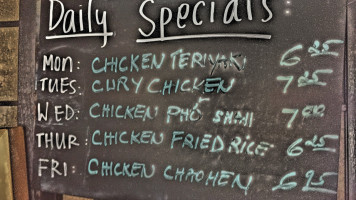 Daily Specials:
MON: CHICKEN TERIYAKI 6 25
TUES: CURY CHICKEN 7 25
WED: CHICKEN PHỞ 7 00
THUR: CHICKEN FRIED RICE 6 25
FRI: CHICKEN CHAOMEN 6 25